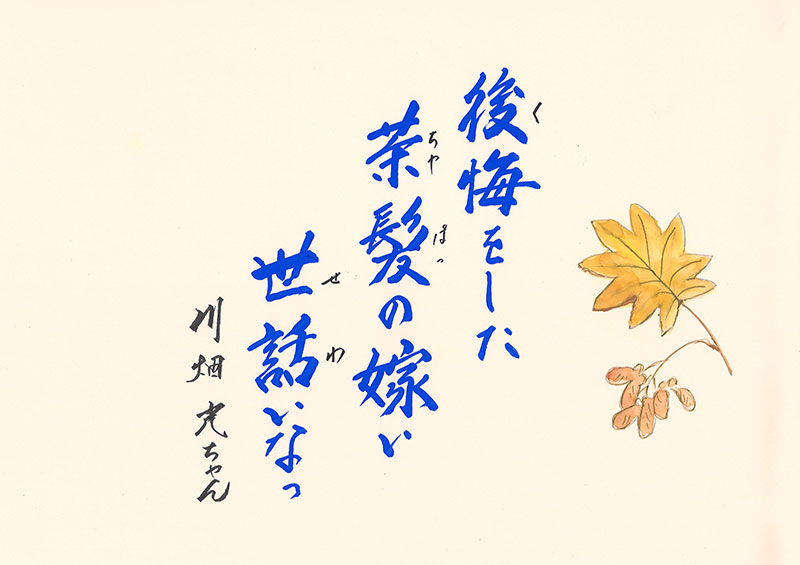 後悔をした
茶髪の嫁い
世話いなっ
川畑虎ちゃん
く
ちゃ
ぱっ
せわ